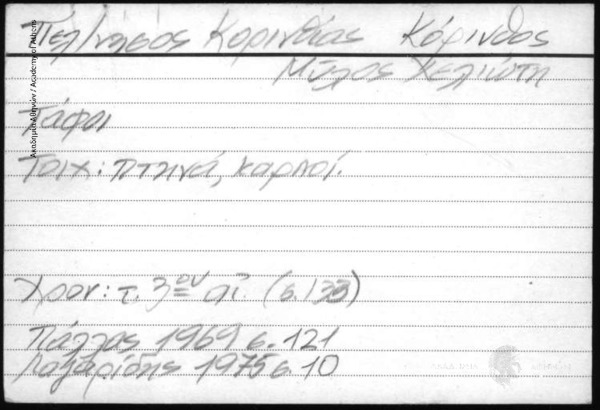 Πελ/νησος Κορινθίας Κόρινθος
Μύλος Χελιώτη
Τάφοι
Τοιχ: πτηνά, καρποί.
Χρον: τ. 3ου αἰ. (σ. 133)
Πάλλας 1969 σ. 121
Λαζαρίδης 1975 σ. 10
Ακαδημία Αθηνών / Academy of Athens